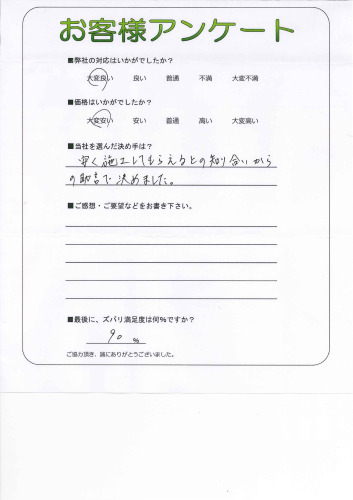 お客様アンケート
■弊社の対応はいかがでしたか？
大変良い 良い 普通 不満 大変不満
■価格はいかがでしたか？
大変安い 安い 普通 高い 大変高い
■当社を選んだ決め手は？
早く施工してもらえるとの知り合いから
の助言で決めました。
■ご感想・ご要望などをお書き下さい。
■最後に、ズバリ満足度は何％ですか？
90 %
ご協力頂き、誠にありがとうございました。